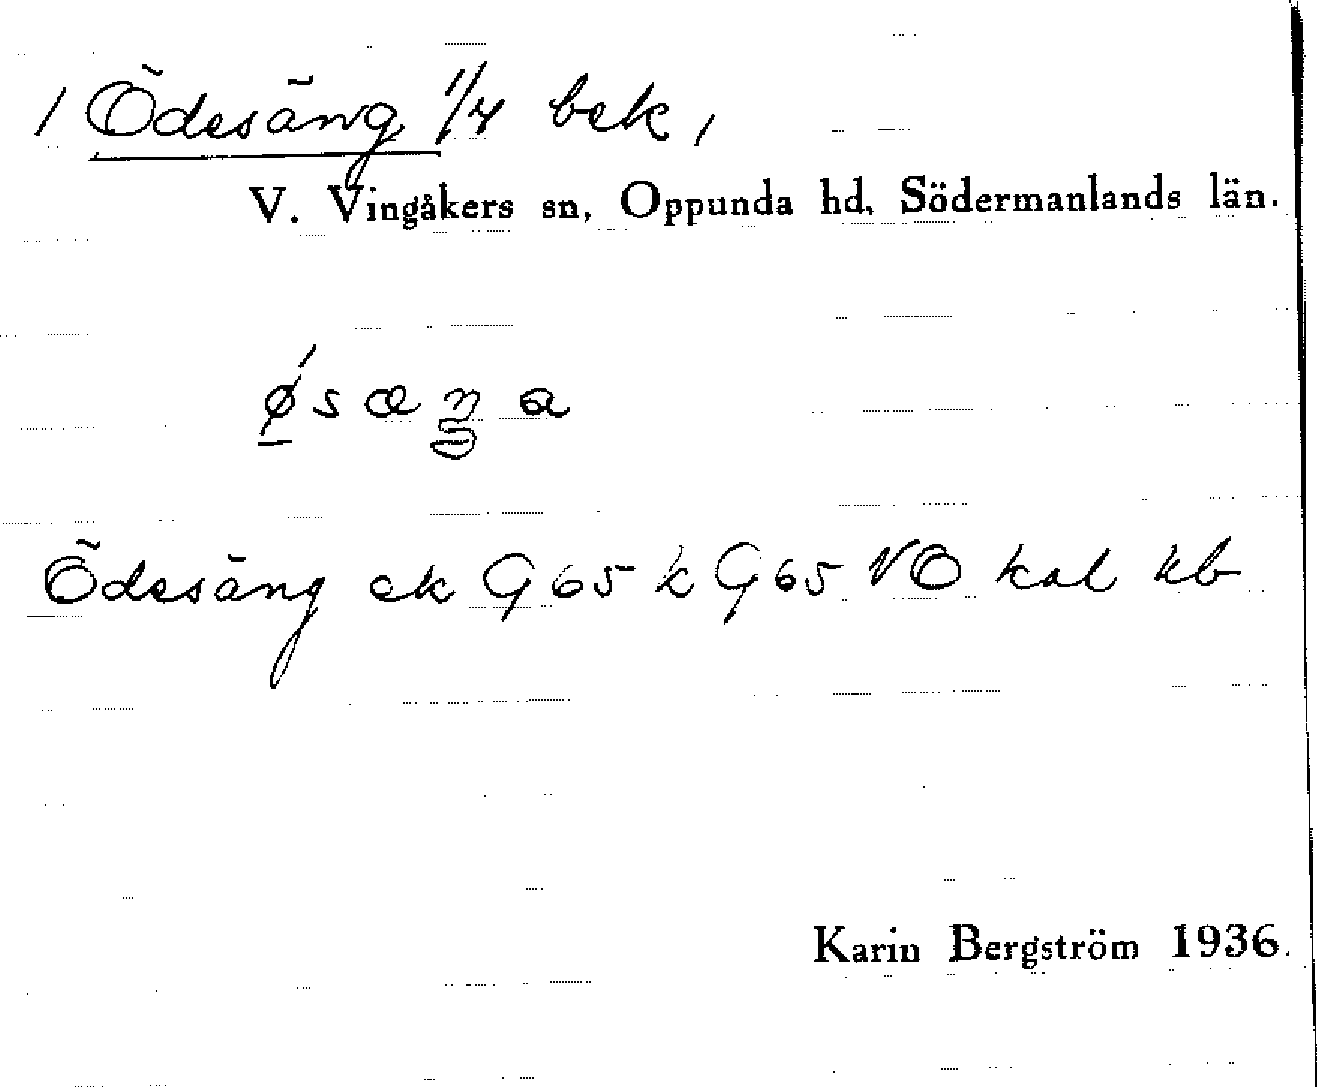 / Ödesäng 1/4 bek /
V. Vingåkers sn, Oppunda hd, Södermanlands län.
øsæŋa
Ödesäng ek G 65 k G 65 VO kal kb
Karin Bergström 1936.